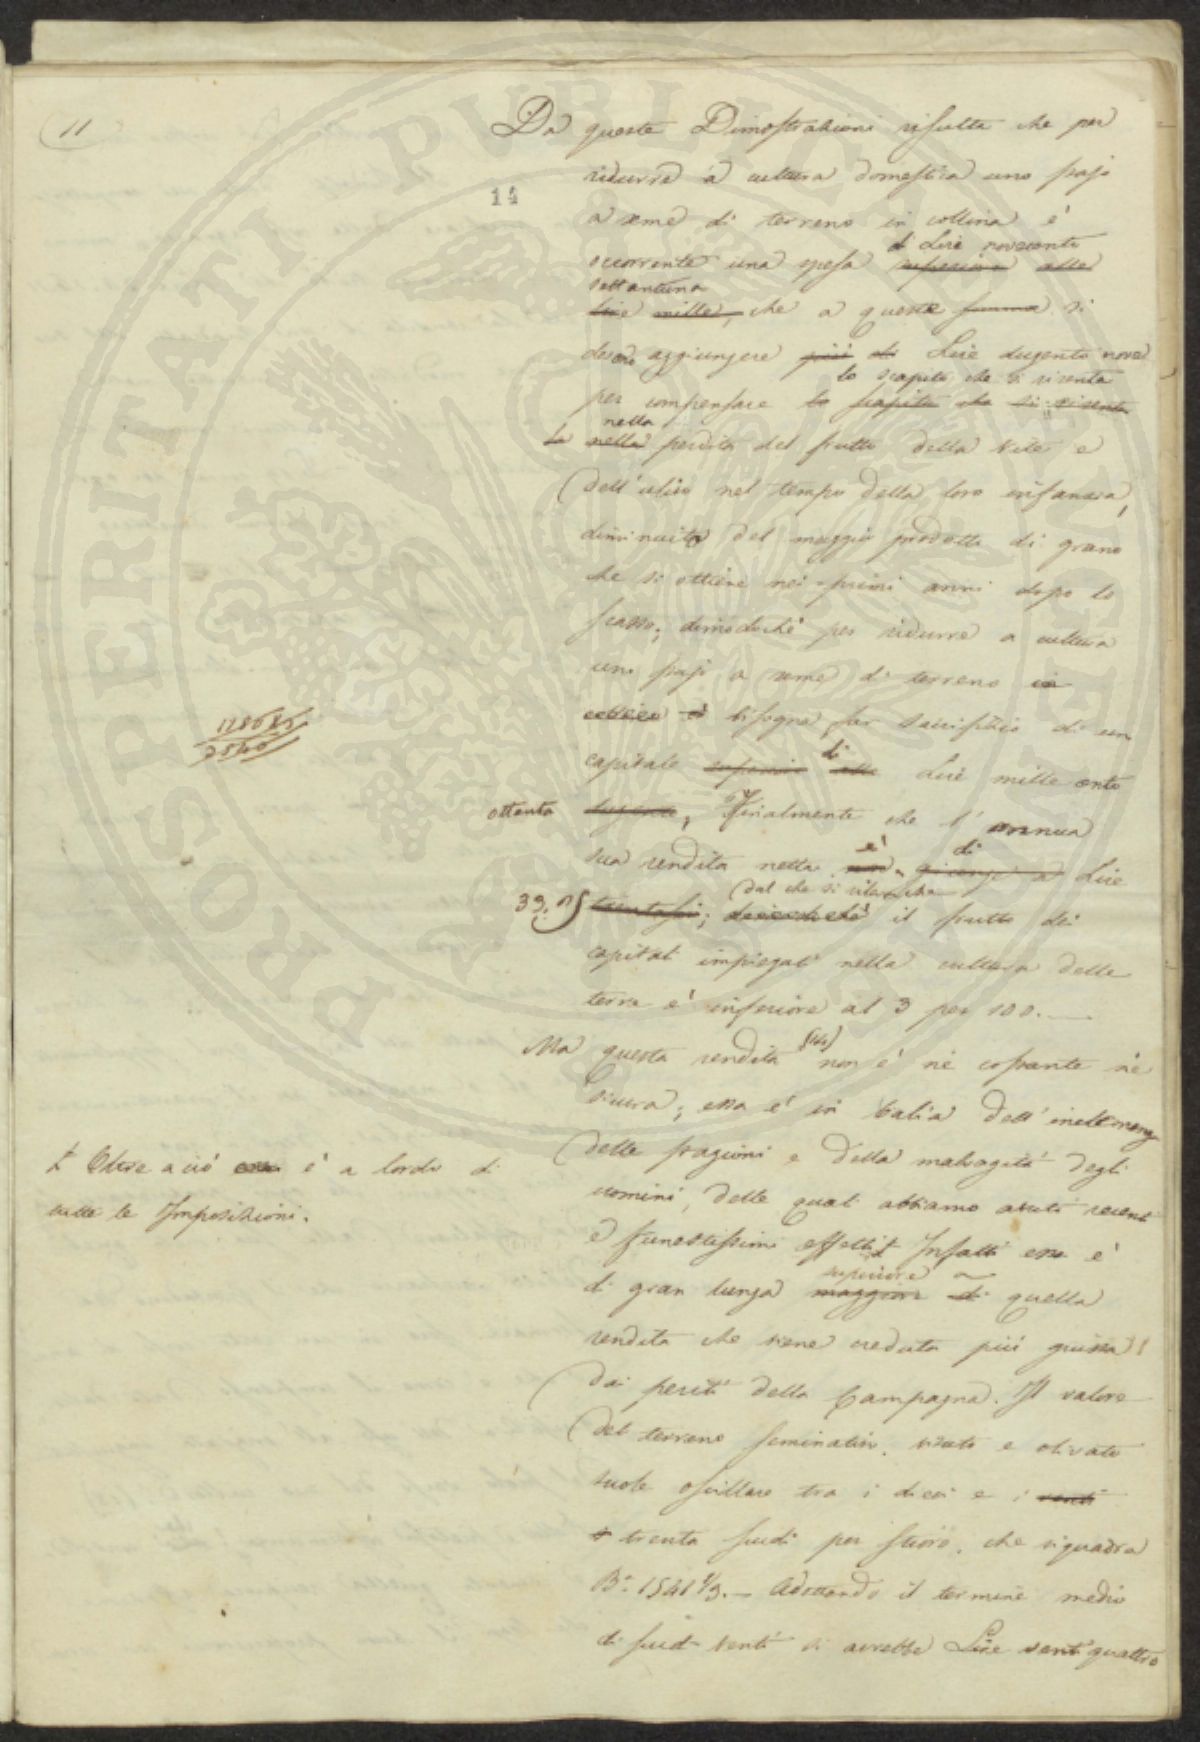 11
14
Da queste Dimostrazioni risulta che per
ridurre a cultura domestica uno stajo
a seme di terreno in collina è
di Lire novecento
occorrente una spesa superiore alle
settantuna
lire mille, che a questa somma si
devono aggiungere più di Lire dugento nove
lo scapito che si risente
per compensare lo scapito che si risente
nella
la nella perdita del frutto della vite e
dell'ulivo nel tempo della loro infanzia,
diminuito del maggior prodotto di grano
che si ottiene nei primi anni dopo lo
scasso; dimodochè per ridurre a cultura
uno stajo a seme di terreno in
collina è bisogna far sacrifizio di un
128686
7840
di
capitale superiore alle Lire mille cento
ottanta dugento; Finalmente che l'annua
è di
sua rendita netta non giunge a Lire
dal che si rileva che
33.15 trentasei; dimodochè il frutto dei
capitali impiegati nella cultura delle
terre è inferiore al 3 per 100. —
Ma questa rendita (14) non è nè costante nè
sicura; essa è in balìa dell'intemperie
delle stagioni e della malvagità degli
uomini, delle quali abbiamo avuti recenti
e funestissimi effetti ‡ Infatti essa è
‡ Oltre a ciò essa è a lordo di
tutte le Imposizioni.
superiore a
di gran lunga maggiore di quella
rendita che viene creduta più giusta
dai periti della Campagna. Il valore
del terreno seminativo, vitato e olivato
suole oscillare tra i dieci e i venti
e trenta scudi per stioro, che riquadra
B.ª 1541 1/3. — Adottando il termine medio
di scudi venti si avrebbe Lire vent'quattro
PROSPERITATI PUBLICAE AUGENDAE